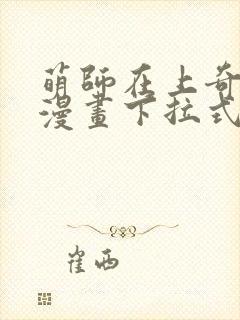 萌師在上奇
漫畫下拉式
崔西